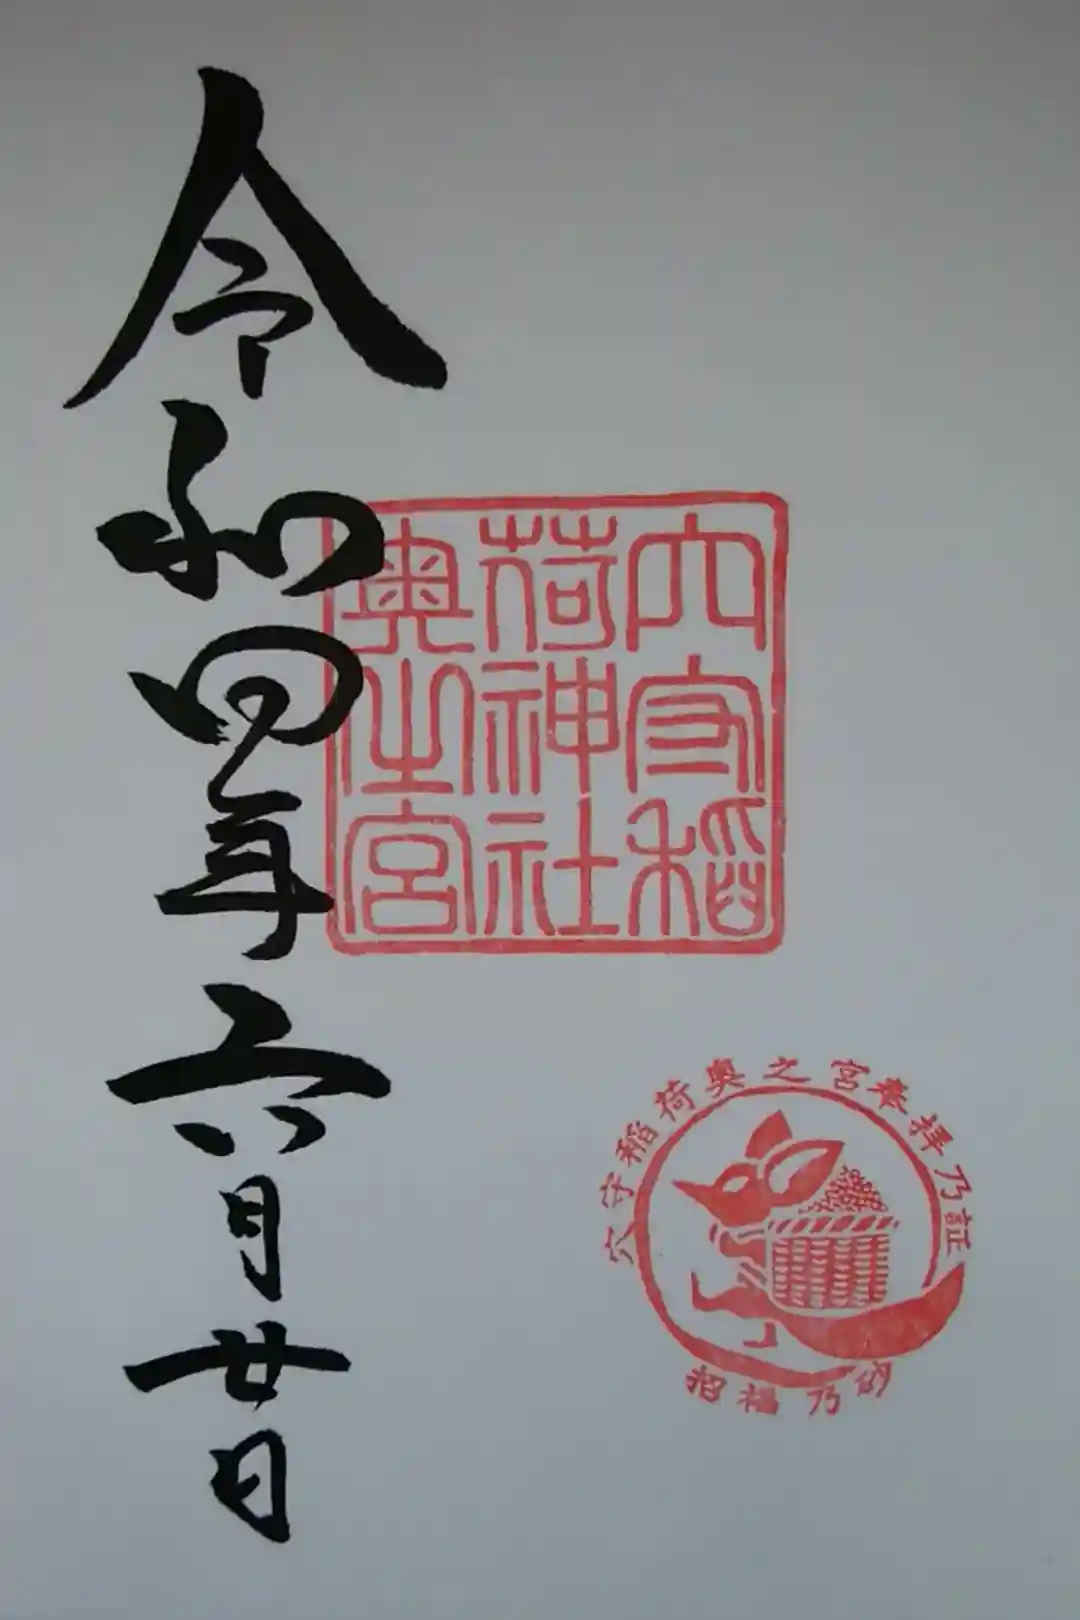 穴守稲
荷神社
奥之宮
令和四年六月廿日
穴守稲荷奥之宮奉拝乃証
招福乃